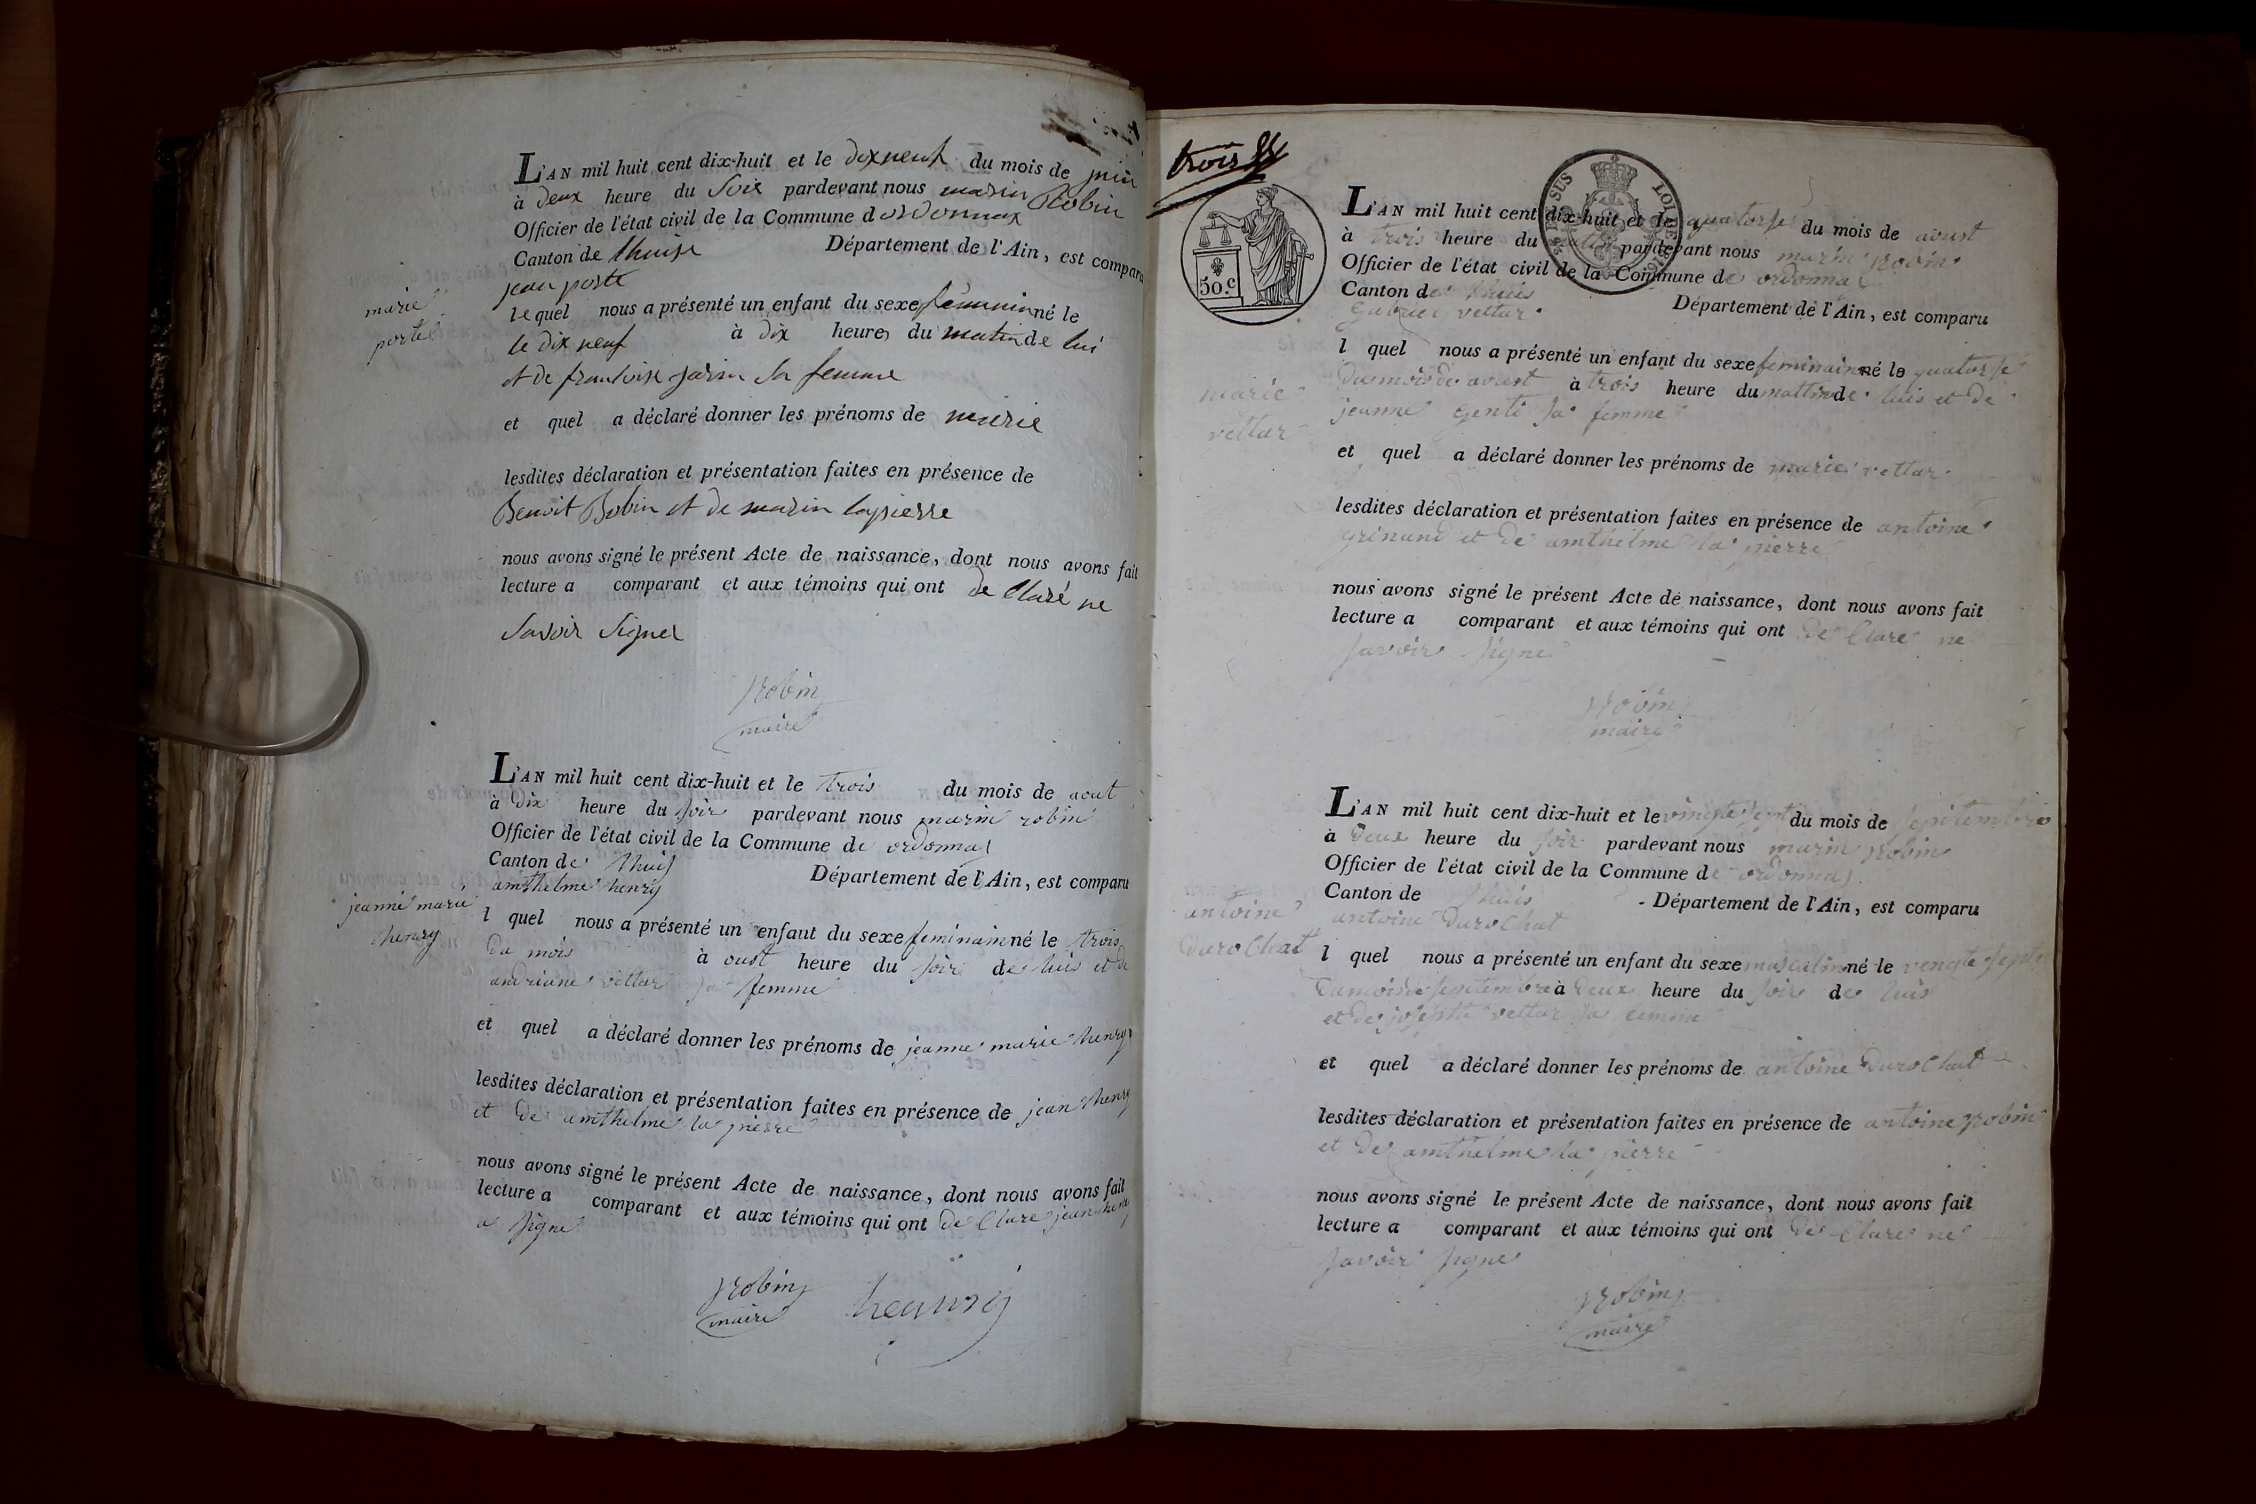 L'AN mil huit cent dix-huit et le dixneuf du mois de juin
à deux heure du soir pardevant nous marin Robin
Officier de l'état civil de la Commune d ordonnax
Canton de Lhuise Département de l'Ain, est comparu
jean poste
marie
porte
lequel nous a présenté un enfant du sexe féminin né le
le dix neuf à dix heures du matin de lui
et de francoise sa femme
et quel a déclaré donner les prénoms de marie
lesdites déclaration et présentation faites en présence de
Benoit Bobin et de marin lapierre
nous avons signé le présent Acte de naissance, dont nous avons fait
lecture a comparant et aux témoins qui ont de Claré ne
Savoir Signer
robin
maire
L'AN mil huit cent dix-huit et le trois du mois de aout
à dix heure du soir pardevant nous marin robin
Officier de l'état civil de la Commune de ordonnas
Canton de lhuis Département de l'Ain, est comparu
amthelme henry
jeanne marie
henry
l quel nous a présenté un enfant du sexe feminain né le trois
du mois à oust heure du soir de luis et de
andriane vettar sa femme
et quel a déclaré donner les prénoms de jeanne marie henry
lesdites déclaration et présentation faites en présence de jean henry
et de amthelme la pierre
nous avons signé le présent Acte de naissance, dont nous avons fait
lecture a comparant et aux témoins qui ont de Clare jean henry
a signe
robin
maire
heanrij
trois
50.c
L'AN mil huit cent dix-huit et le quatorse du mois de avust
à trois heure du pardevant nous marin robin
Officier de l'état civil de la Commune de ordonnas
Canton de lhuis Département de l'Ain, est comparu
Gabriel vettar
l quel nous a présenté un enfant du sexe feminain né le quatorse
du mois de avust à trois heure du mattin de luis et de
marie
vettar
jeanne genti sa femme
et quel a déclaré donner les prénoms de marie vettar
lesdites déclaration et présentation faites en présence de antoine
grinand et de amthelme la pierre
nous avons signé le présent Acte de naissance, dont nous avons fait
lecture a comparant et aux témoins qui ont de Clare ne
savoir signe
robin
maire
L'AN mil huit cent dix-huit et le vingte sept du mois de sepitembre
à deux heure du soir pardevant nous marin robin
Officier de l'état civil de la Commune de ordonnas
Canton de lhuis Département de l'Ain, est comparu
antoine
duro Chat
antoine duro Chat
l quel nous a présenté un enfant du sexe masculin né le vengte septe
du mois de septembre à deux heure du soir de luis
et de josephte vettar sa femme
et quel a déclaré donner les prénoms de antoine duro Chat
lesdites déclaration et présentation faites en présence de antoine robin
et de amthelme la pierre
nous avons signé le présent Acte de naissance, dont nous avons fait
lecture a comparant et aux témoins qui ont de Clare ne
savoir signe
robin
maire